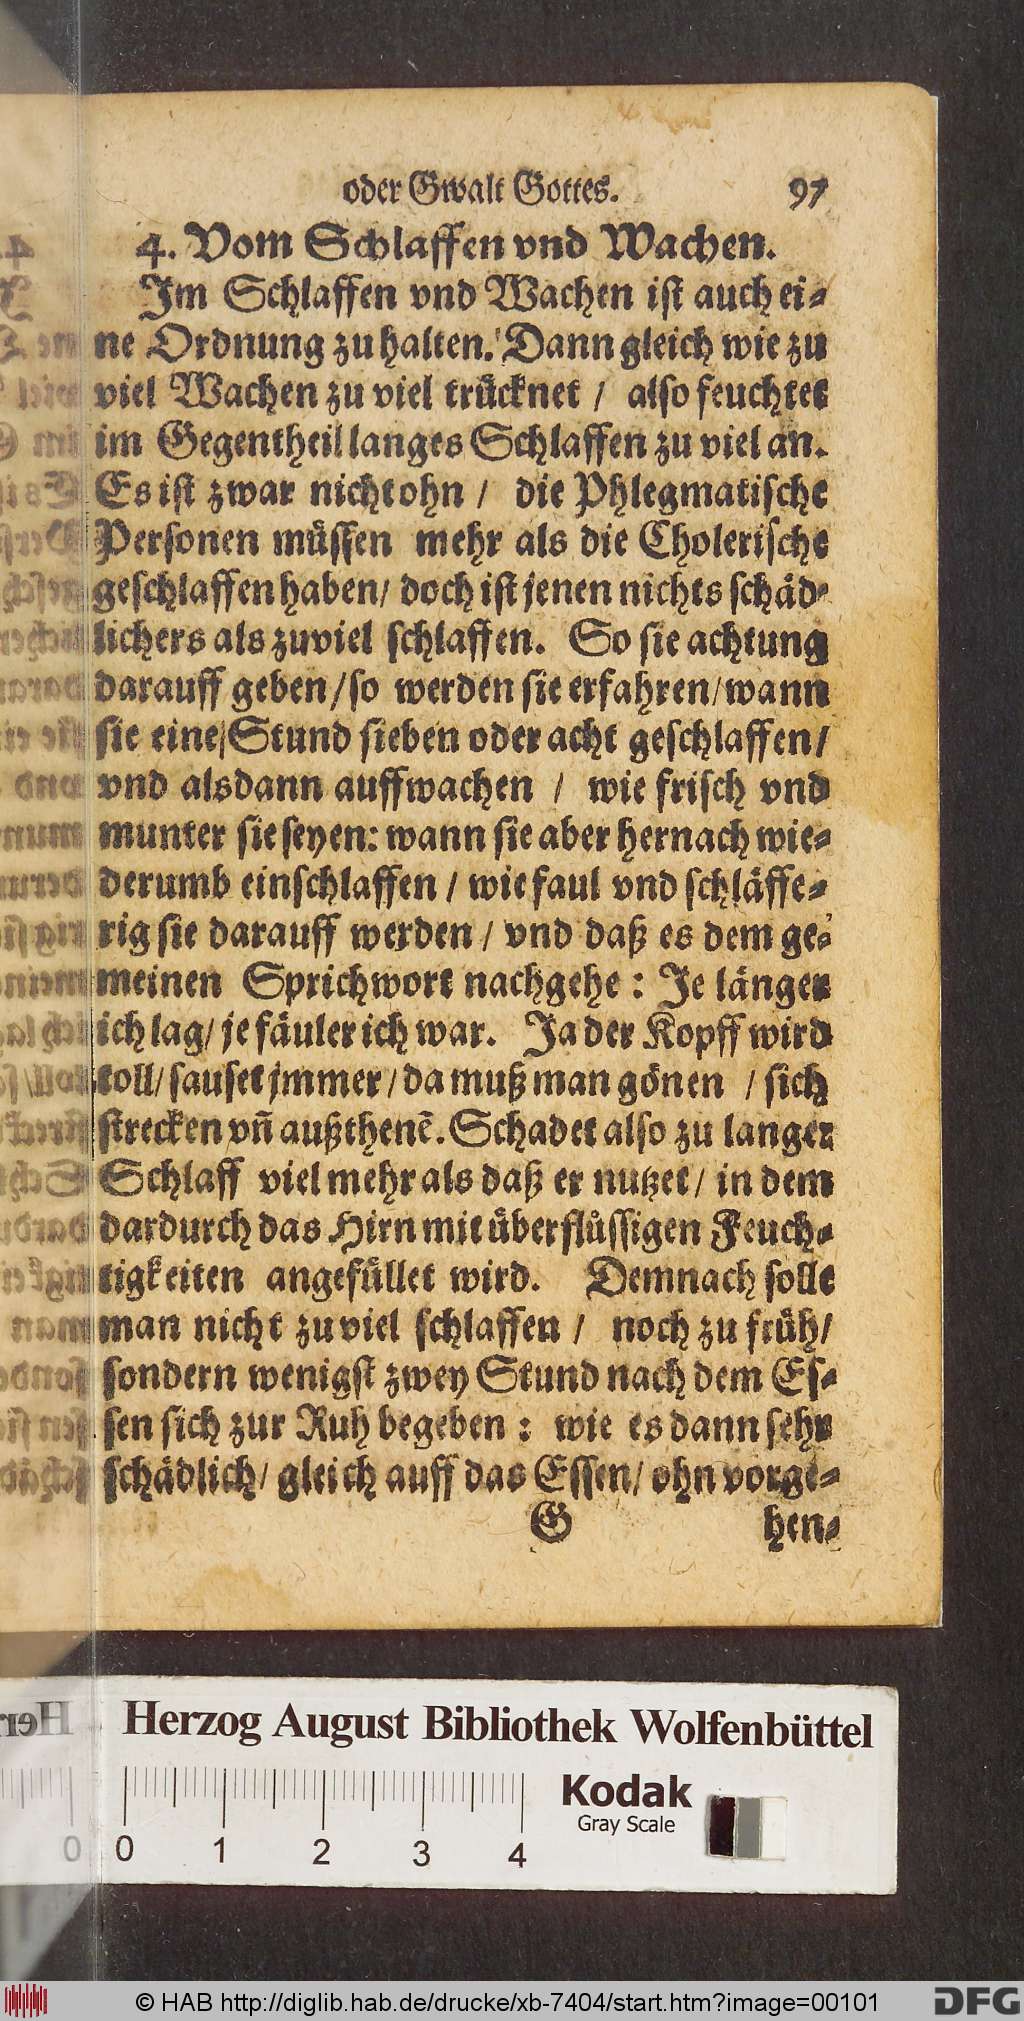 oder Gwalt Gottes. 97
4. Vom Schlaffen vnd Wachen.
Im Schlaffen vnd Wachen ist auch ei-
ne Ordnung zu halten. Dann gleich wie zu
viel Wachen zu viel trücknet / also feuchtet
im Gegentheil langes Schlaffen zu viel an.
Es ist zwar nicht ohn / die Phlegmatische
Personen müssen mehr als die Cholerische
geschlaffen haben / doch ist jenen nichts schäd-
lichers als zuviel schlaffen. So sie achtung
darauff geben / so werden sie erfahren / wann
sie eine Stund sieben oder acht geschlaffen /
vnd alsdann auffwachen / wie frisch vnd
munter sie seyen: wann sie aber hernach wie-
derumb einschlaffen / wie faul vnd schläffe-
rig sie darauff werden / vnd daß es dem ge-
meinen Sprichwort nachgehe: Je länger
ich lag / je fäuler ich war. Ja der Kopff wird
toll / sauset jmmer / da muß man gönen / sich
strecken vñ außthenẽ. Schadet also zu langer
Schlaff viel mehr als daß er nutzet / in dem
dardurch das Hirn mit überflüssigen Feuch-
tigkeiten angefüllet wird. Demnach solle
man nicht zuviel schlaffen / noch zu früh /
sondern wenigst zwey Stund nach dem Es-
sen sich zur Ruh begeben: wie es dann sehr
schädlich / gleich auff das Essen / ohn vorge-
G hen-
Herzog August Bibliothek Wolfenbüttel
Kodak
Gray Scale
0 0 1 2 3 4
© HAB http://diglib.hab.de/drucke/xb-7404/start.htm?image=00101
DFG